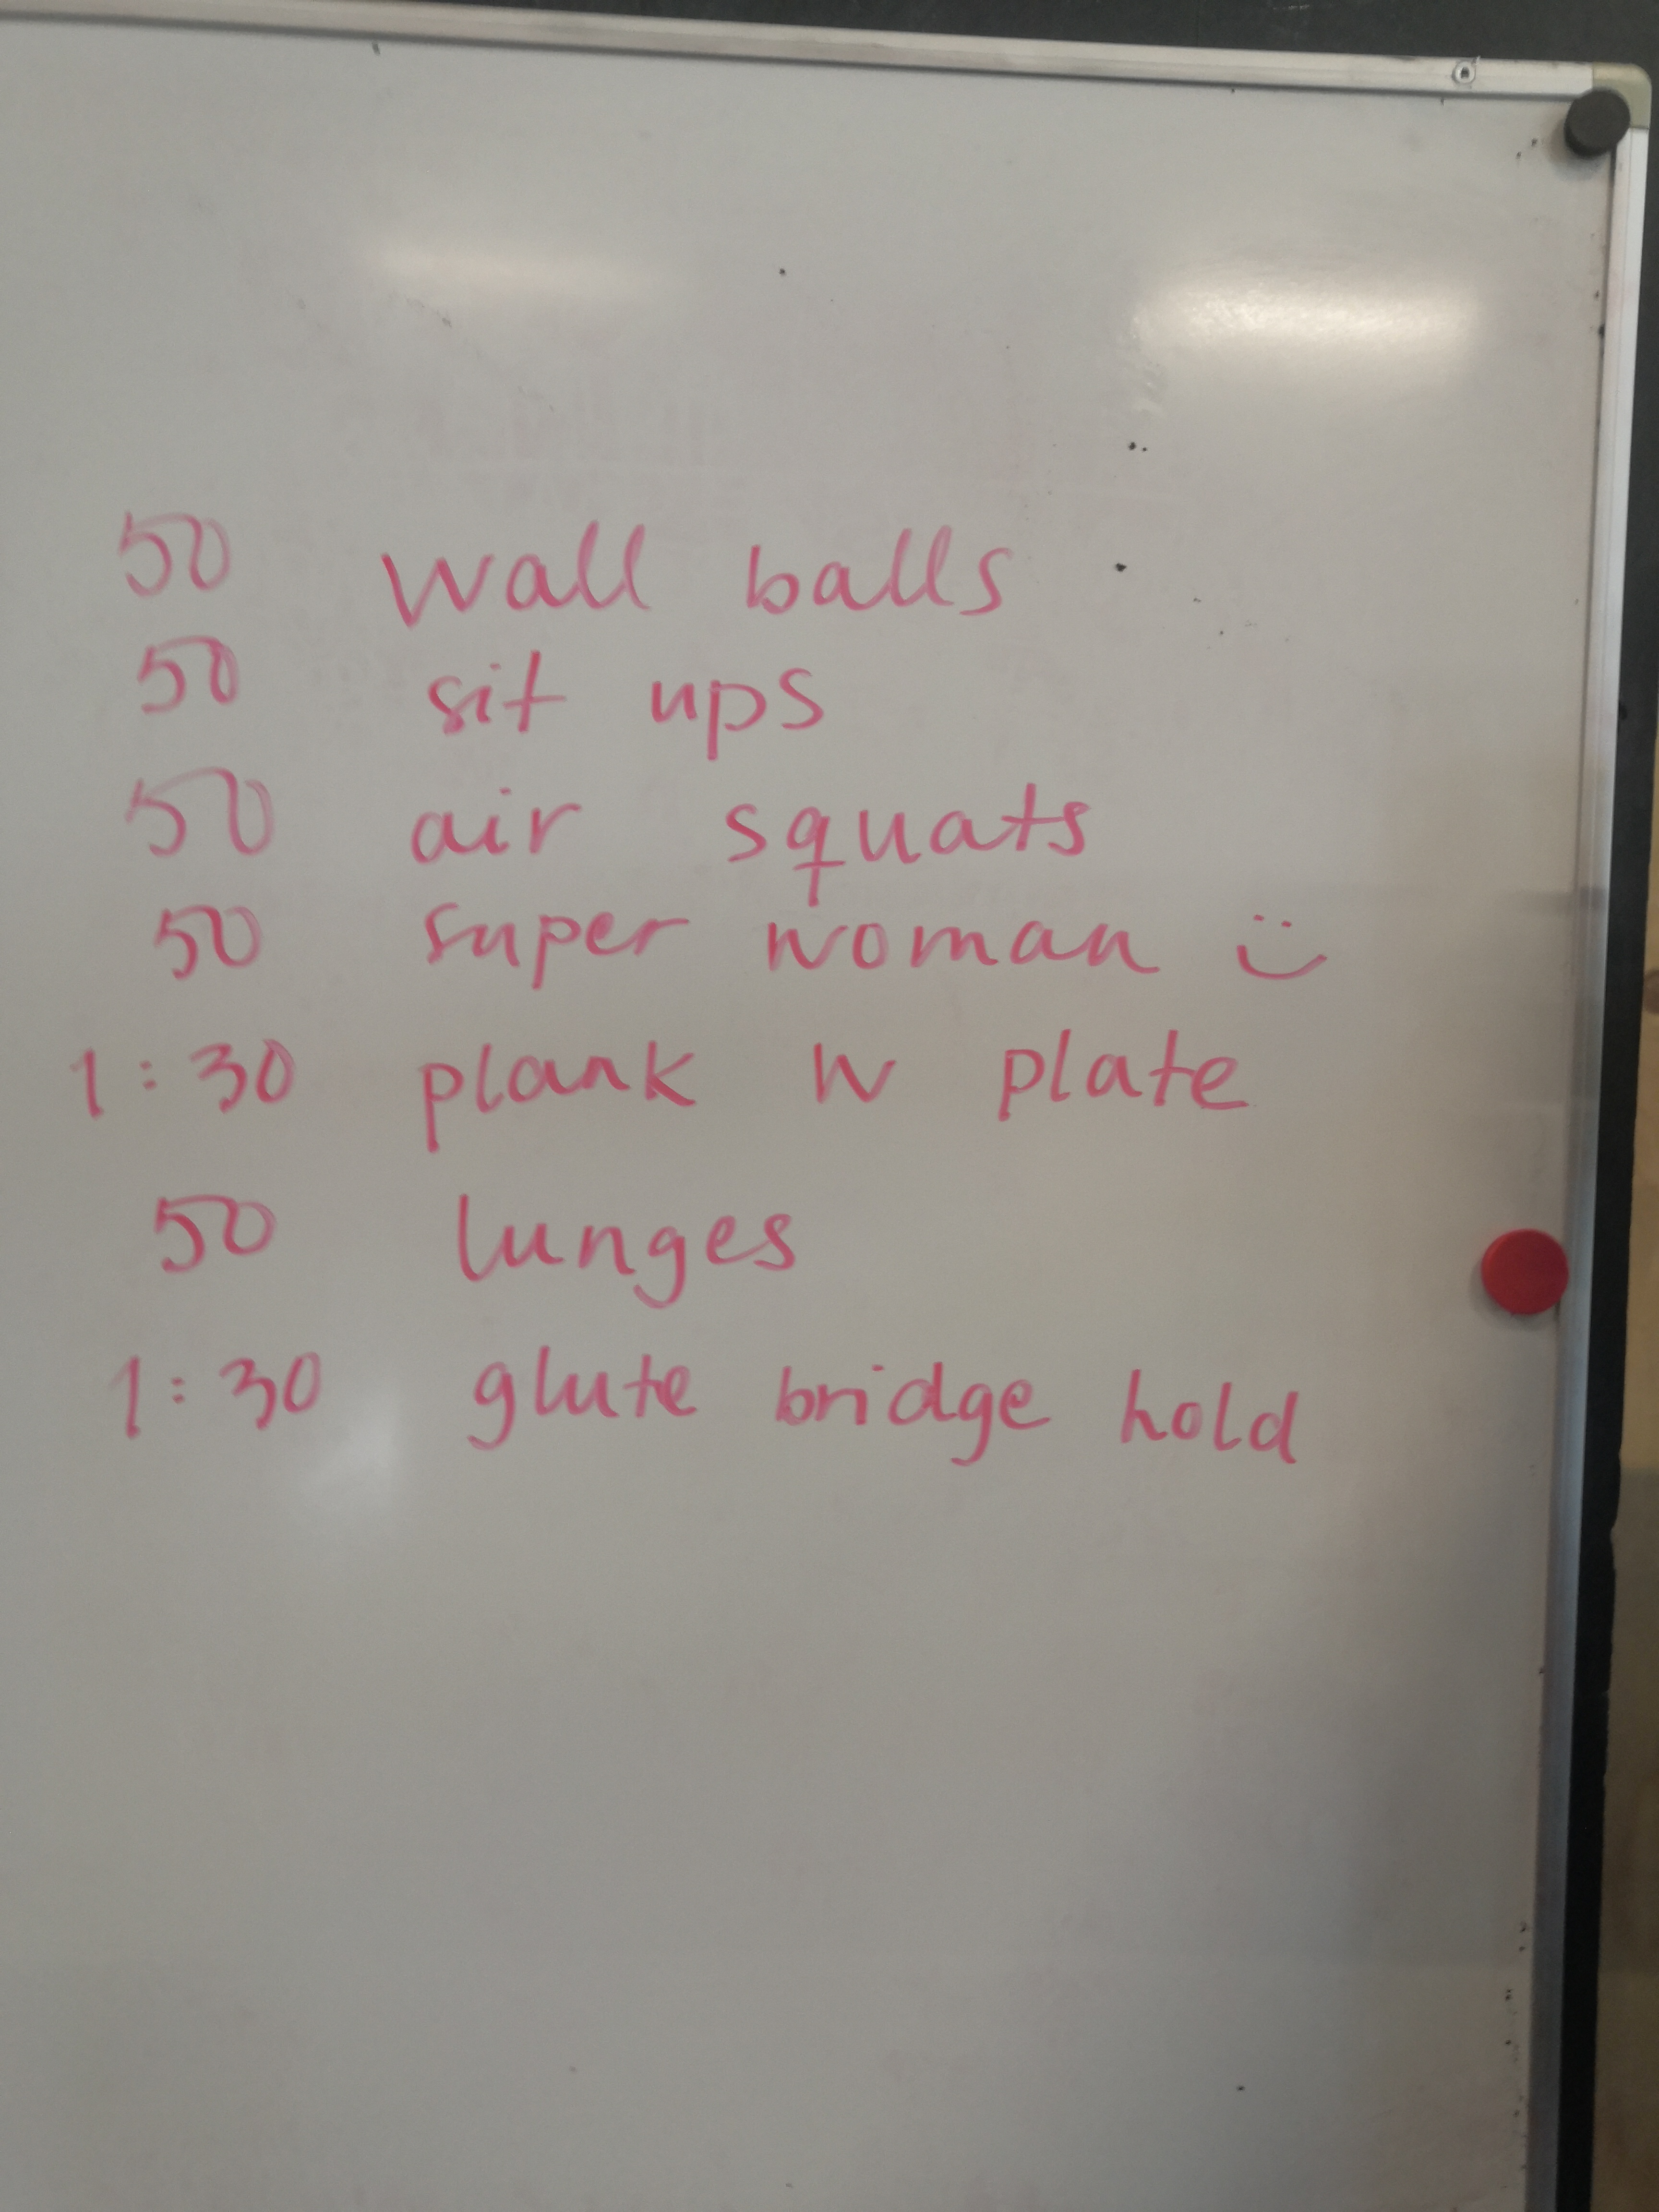 50 wall balls
50 sit ups
50 air squats
50 super woman :)
1:30 plank w plate
50 lunges
1:30 glute bridge hold